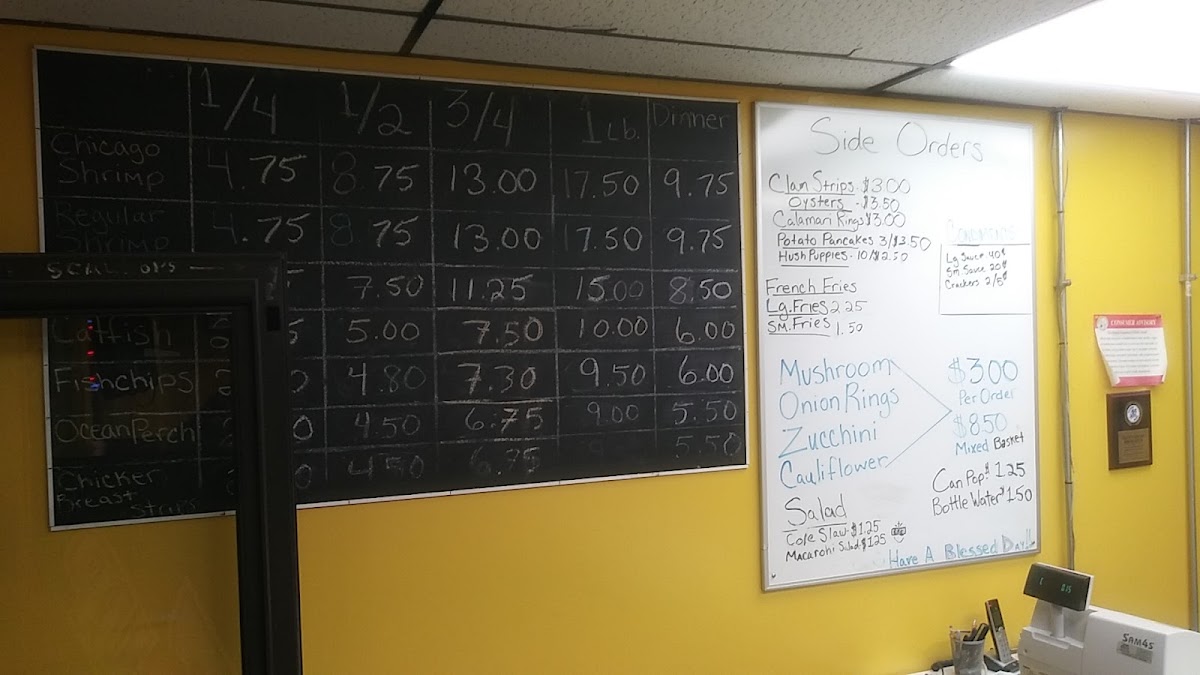 1/4 1/2 3/4 1 Lb. Dinner
Chicago Shrimp 4.75 8.75 13.00 17.50 9.75
Regular Shrimp 4.75 8.75 13.00 17.50 9.75
SCALLOPS 7.50 11.25 15.00 8.50
Catfish 5.00 7.50 10.00 6.00
Fishchips 4.80 7.30 9.50 6.00
OceanPerch 4.50 6.75 9.00 5.50
Chicken Breast Strips 4.50 6.75 5.50
Side Orders
Clam Strips - $3.00
Oysters - $3.50
Calamari Rings $3.00
Potato Pancakes 3/$3.50
Hush Puppies - 10/$2.50
French Fries
Lg. Fries 2.25
SM. Fries 1.50
Condiments
Lg Sauce 40¢
Sm. Sauce 20¢
Crackers 2/5¢
Mushroom
Onion Rings
Zucchini
Cauliflower
$3.00
Per Order
$8.50
Mixed Basket
Can Pop $1.25
Bottle Water $1.50
Salad
Cole Slaw - $1.25
Macaroni Salad - $1.25
Have A Blessed Day!!
CONSUMER ADVISORY
SAM4S